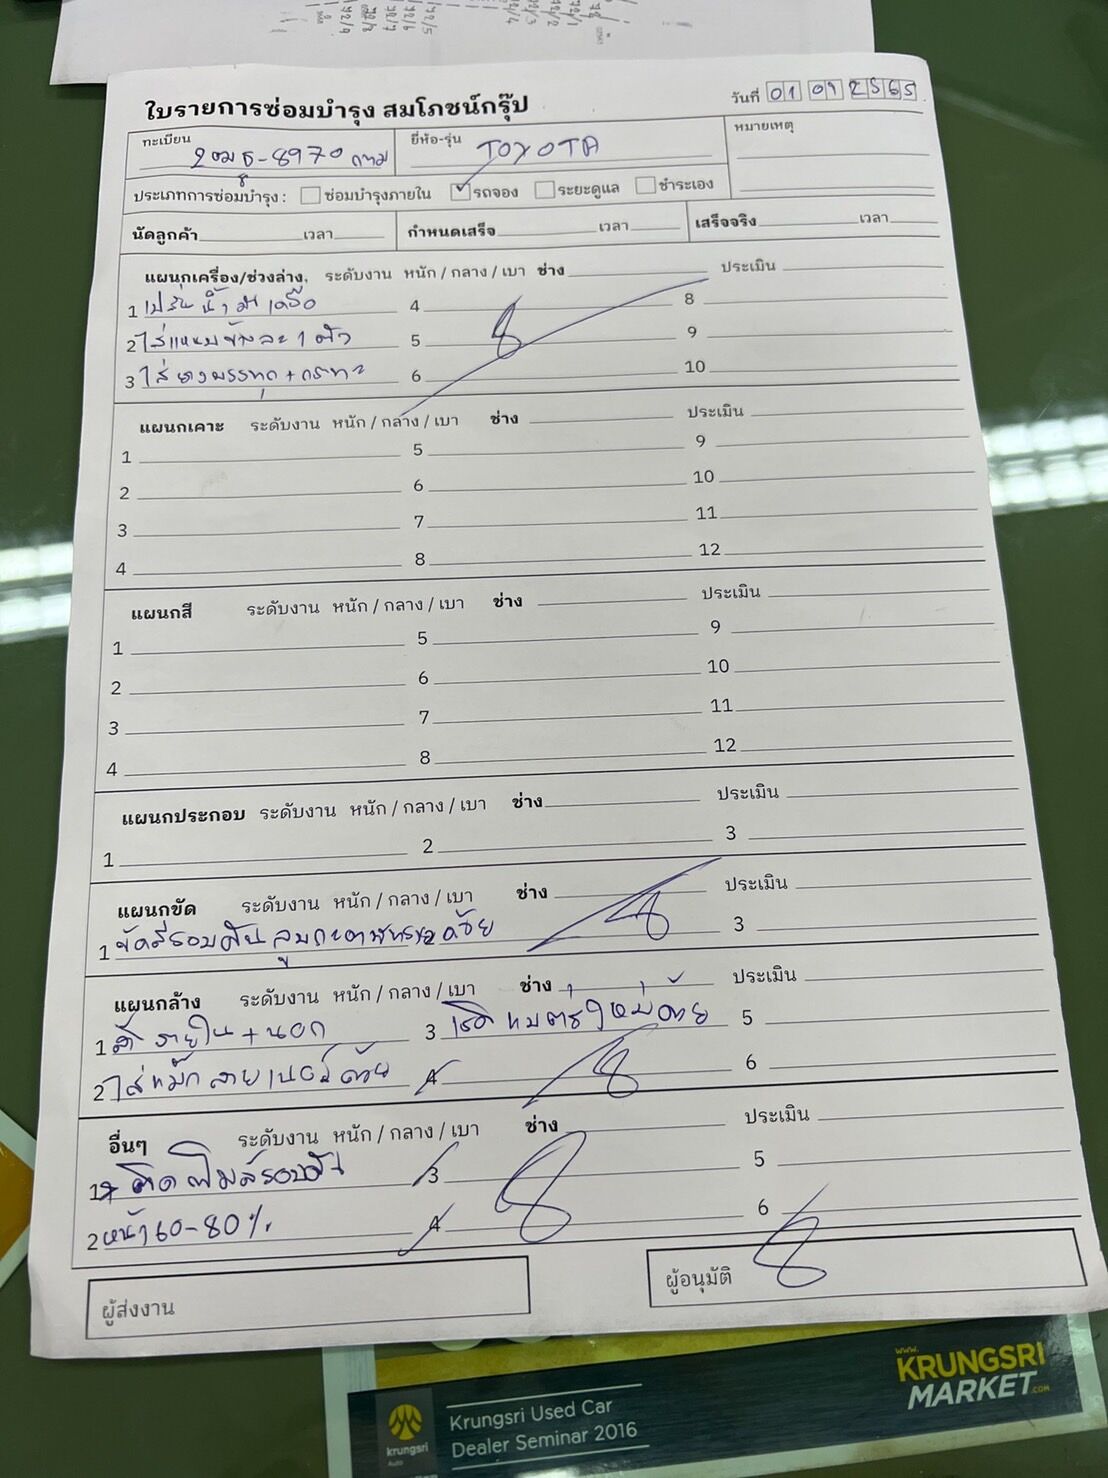 ใบรายการซ่อมบำรุง สมโภชน์กรุ๊ป
วันที่ 01 09 2565
ทะเบียน 2ฒธ-8970 กทม
ยี่ห้อ-รุ่น TOYOTA
หมายเหตุ
ประเภทการซ่อมบำรุง : ซ่อมบำรุงภายใน รถจอง ระยะดูแล ชำระเอง
นัดลูกค้า เวลา กำหนดเสร็จ เวลา เสร็จจริง เวลา
แผนกเครื่อง/ช่วงล่าง. ระดับงาน หนัก / กลาง / เบา ช่าง ประเมิน
1 4 8
2 ใส่แหนบข้างละ 1 ตัว 5 9
3 ใส่ยางบรรทุก + กระทะ 6 10
แผนกเคาะ ระดับงาน หนัก / กลาง / เบา ช่าง ประเมิน
1 5 9
2 6 10
3 7 11
4 8 12
แผนกสี ระดับงาน หนัก / กลาง / เบา ช่าง ประเมิน
1 5 9
2 6 10
3 7 11
4 8 12
แผนกประกอบ ระดับงาน หนัก / กลาง / เบา ช่าง ประเมิน
1 2 3
แผนกขัด ระดับงาน หนัก / กลาง / เบา ช่าง ประเมิน
1 ขัดสีรอบคัน ด้วย 3
แผนกล้าง ระดับงาน หนัก / กลาง / เบา ช่าง ประเมิน
1 ล้างภายใน + นอก 3 5
2 ใส่แม็ก ลายเนอร์ ด้วย 4 6
อื่นๆ ระดับงาน หนัก / กลาง / เบา ช่าง ประเมิน
1 ติดฟิมล์รอบคัน 3 5
2 หน้า 60-80% 4 6
ผู้ส่งงาน
ผู้อนุมัติ
WWW.
KRUNGSRI
MARKET.COM
krungsri
Auto
Krungsri Used Car
Dealer Seminar 2016